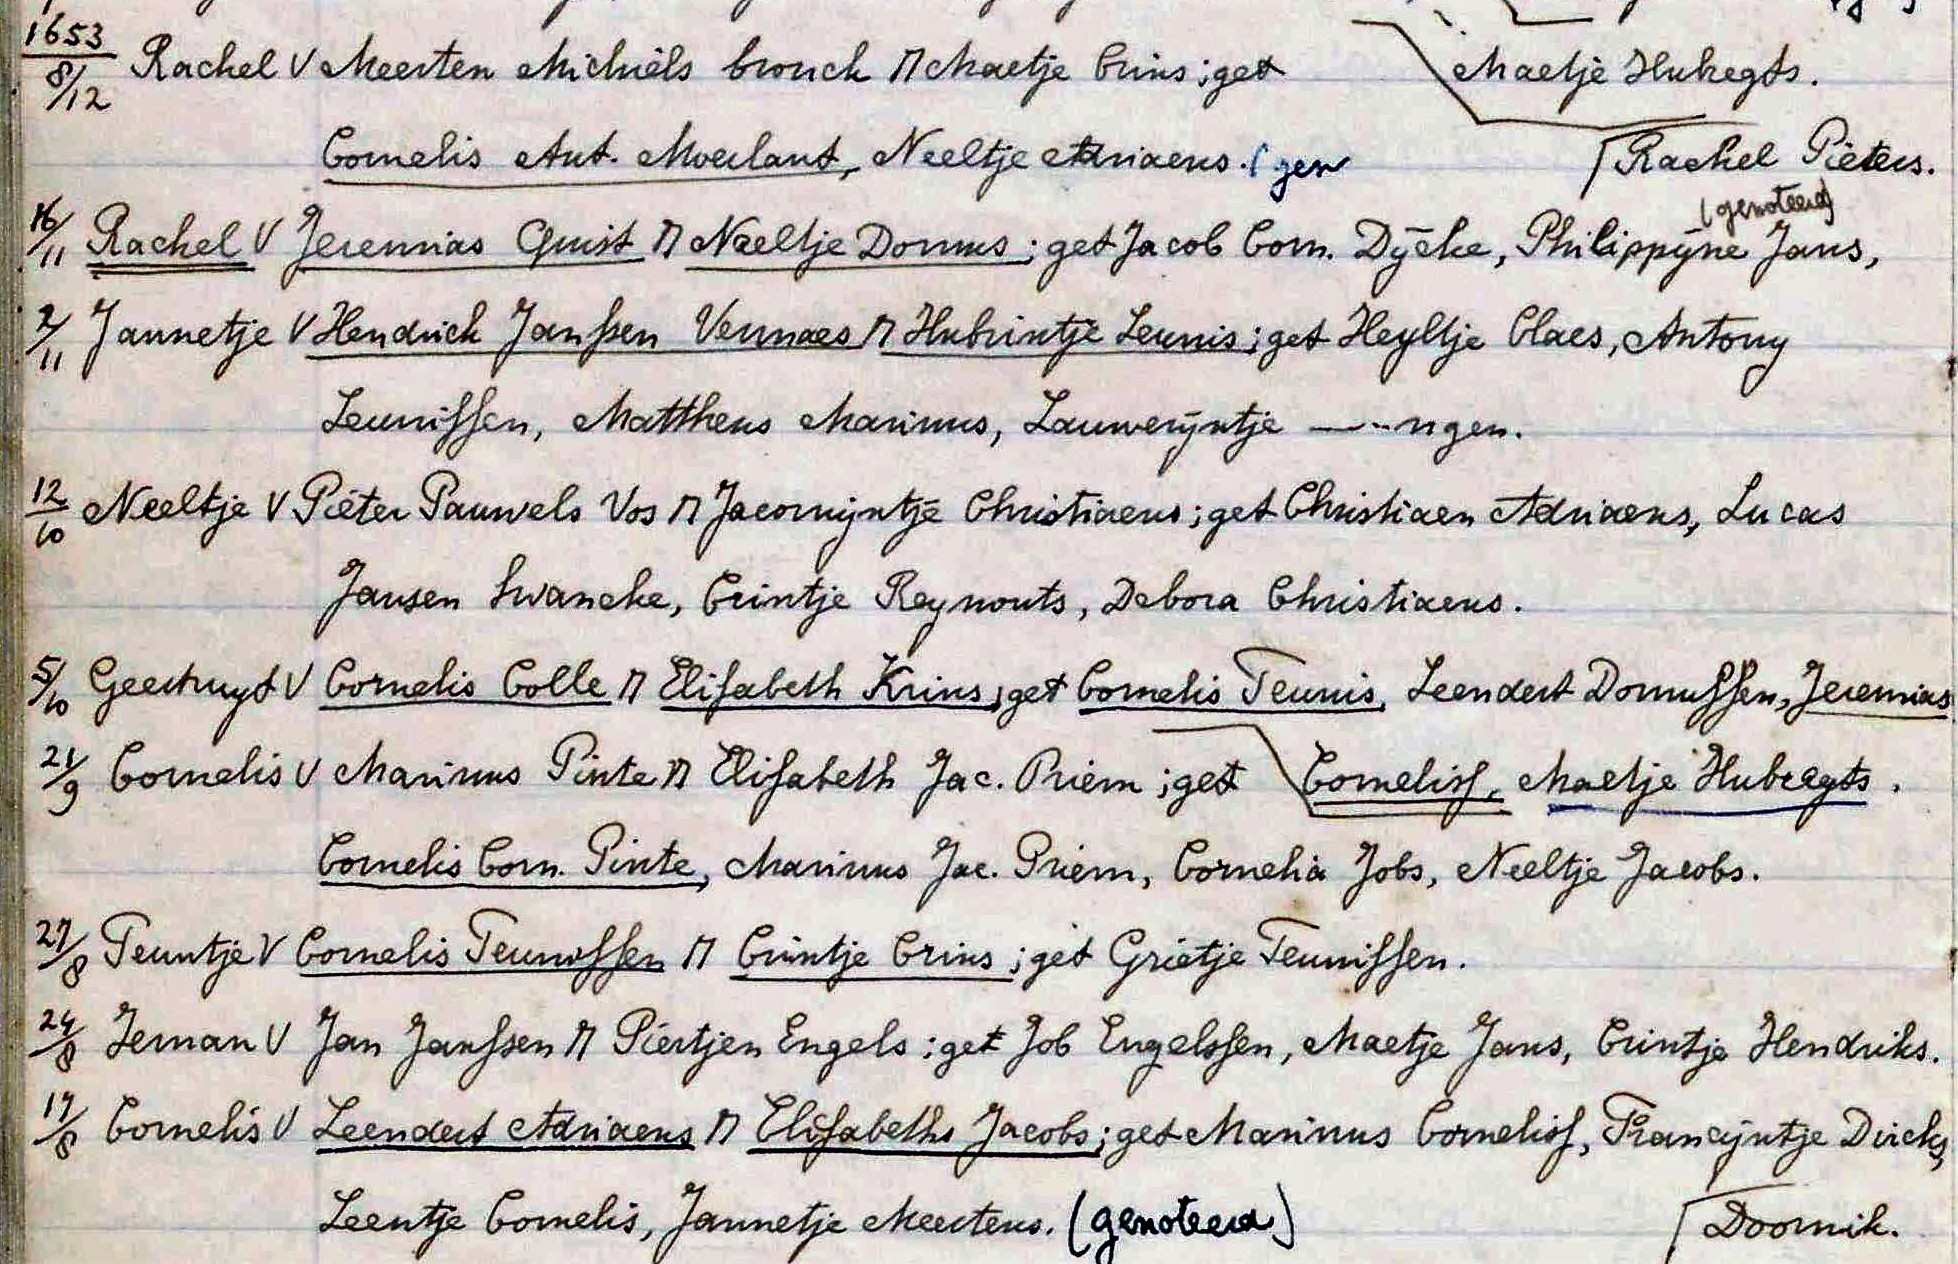 1653
8/12 Rachel V Meerten Michiels brouck M Maetje Crins ; get Maetje Hubregts.
Cornelis Ant. Moelant, Neeltje Adriaens. (gen Rachel Pieters.
(genoteerd)
16/11 Rachel V Jeremias Quist M Neeltje Domus ; get Jacob Corn. Dÿcke, Philippÿne Jans,
2/11 Jannetje V Hendrick Janssen Vermaes M Hubrintje Leunis ; get Heyltje Claes, Antony
Leunissen, Mattheus Marinus, Lauwerÿntje —--ngen.
12/10 Neeltje V Pieter Pauwels Vos M Jacomijntje Christiaens ; get Christiaen Adriaens, Lucas
Jansen Swancke, Crintje Reynouts, Debora Christiaens.
5/10 Geertruyt V Cornelis Colle M Elisabeth Krins ; get Cornelis Teunis, Leendert Domussen, Jeremias
21/9 Cornelis V Marinus Pinte M Elisabeth Jac. Priem ; get Corneliss, Maetje Hubregts.
Cornelis Corn. Pinte, Marinus Jac. Priem, Cornelia Jobs, Neeltje Jacobs.
27/8 Teuntje V Cornelis Teunissen M Crintje Crins ; get Grietje Teunissen.
24/8 Ieman V Jan Janssen M Piertjen Engels ; get Job Engelssen, Maetje Jans, Crintje Hendriks.
17/8 Cornelis V Leendert Adriaens M Elisabeths Jacobs ; get Marinus Corneliss, Francijntje Dircks,
Leentje Cornelis, Jannetje Meertens. (genoteerd) Doornik.